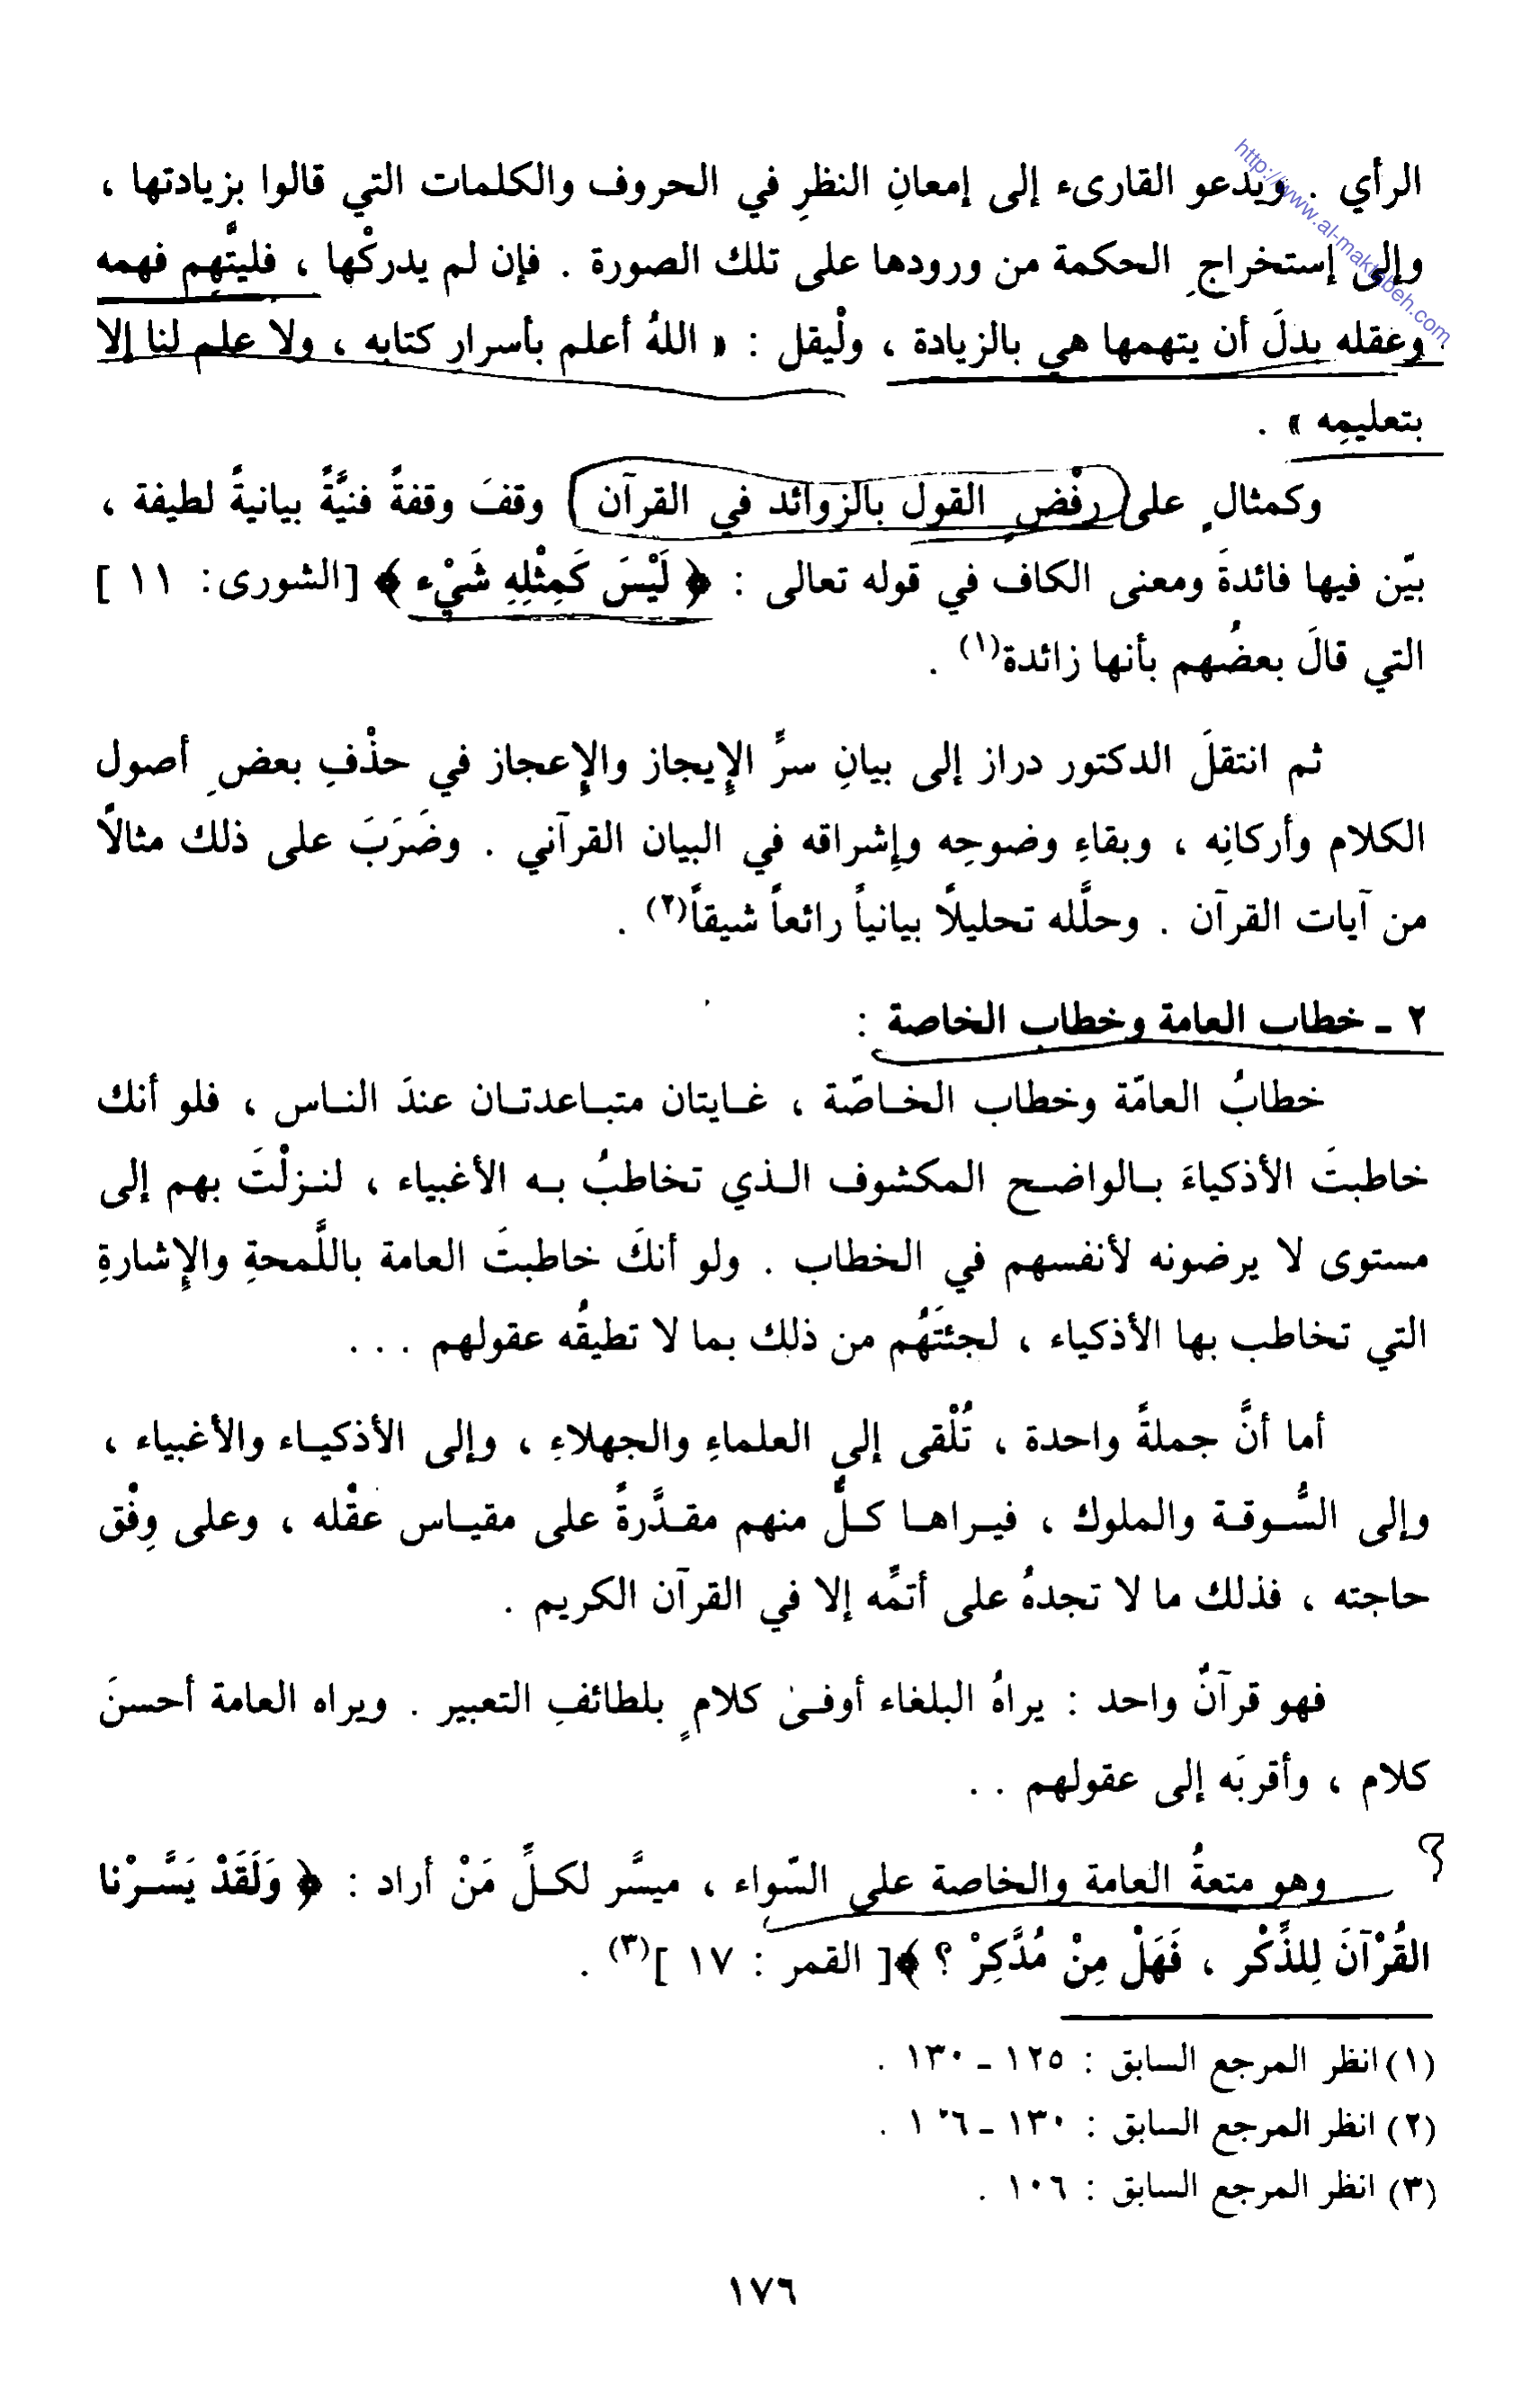 http://www.al-maktabeh.com
الرأي . ويدعو القارىء إلى إمعانِ النظرِ في الحروف والكلمات التي قالوا بزيادتها ،
وإلى إستخراجِ الحكمة من ورودها على تلك الصورة . فإن لم يدركْها ، فليتَّهِم فهمه
وعقله بدلَ أن يتهمها هي بالزيادة ، ولْيقل : « اللهُ أعلم بأسرار كتابه ، ولا علم لنا إلا
بتعليمِه » .
وكمثالٍ على رفْض القول بالزوائد في القرآن ) وقفَ وقفةً فنيَّةً بيانيةً لطيفة ،
بيّن فيها فائدةَ ومعنى الكاف في قوله تعالى : ﴿ لَيْسَ كَمِثْلِهِ شَيْء ﴾ [الشورى: ١١ ]
التي قالَ بعضُهم بأنها زائدة(١) .
ثم انتقلَ الدكتور دراز إلى بيانِ سرِّ الإيجاز والإعجاز في حذْفِ بعضِ أصول
الكلام وأركانِه ، وبقاءِ وضوحِه وإشراقه في البيان القرآني . وضَرَبَ على ذلك مثالاً
من آيات القرآن . وحلَّله تحليلاً بيانياً رائعاً شيقاً(٢) .
٢ ـ خطاب العامة وخطاب الخاصة :
خطابُ العامّة وخطاب الخـاصّة ، غـايتان متبـاعدتـان عندَ النـاس ، فلو أنك
خاطبتَ الأذكياءَ بـالواضـح المكشوف الـذي تخاطبُ بـه الأغبياء ، لنـزلْتَ بهم إلى
مستوى لا يرضونه لأنفسهم في الخطاب . ولو أنكَ خاطبتَ العامة باللَّمحةِ والإشارةِ
التي تخاطب بها الأذكياء ، لجئتَهُم من ذلك بما لا تطيقُه عقولهم . . .
أما أنَّ جملةً واحدة ، تُلْقى إلى العلماءِ والجهلاءِ ، وإلى الأذكيـاء والأغبياء ،
وإلى السُّـوقـة والملوك ، فيـراهـا كـلٌّ منهم مقـدَّرةً على مقيـاس عقْله ، وعلى وِفْق
حاجته ، فذلك ما لا تجدهُ على أتمِّه إلا في القرآن الكريم .
فهو قرآنٌ واحد : يراهُ البلغاء أوفـىٰ كلامٍ بلطائفِ التعبير . ويراه العامة أحسنَ
كلام ، وأقربَه إلى عقولهم . .
؟ وهو متعةُ العامة والخاصة على السّواء ، ميسَّر لكـلِّ مَنْ أراد : ﴿ وَلَقَدْ يَسَّـرْنا
القُرْآنَ لِلذِّكْر ، فَهَلْ مِنْ مُدَّكِرْ ؟ ﴾[ القمر : ١٧ ](٣) .
(١) انظر المرجع السابق : ١٢٥ ـ ١٣٠ .
(٢) انظر المرجع السابق : ١٣٠ ـ
(٣) انظر المرجع السابق : ١٠٦ .
١٧٦